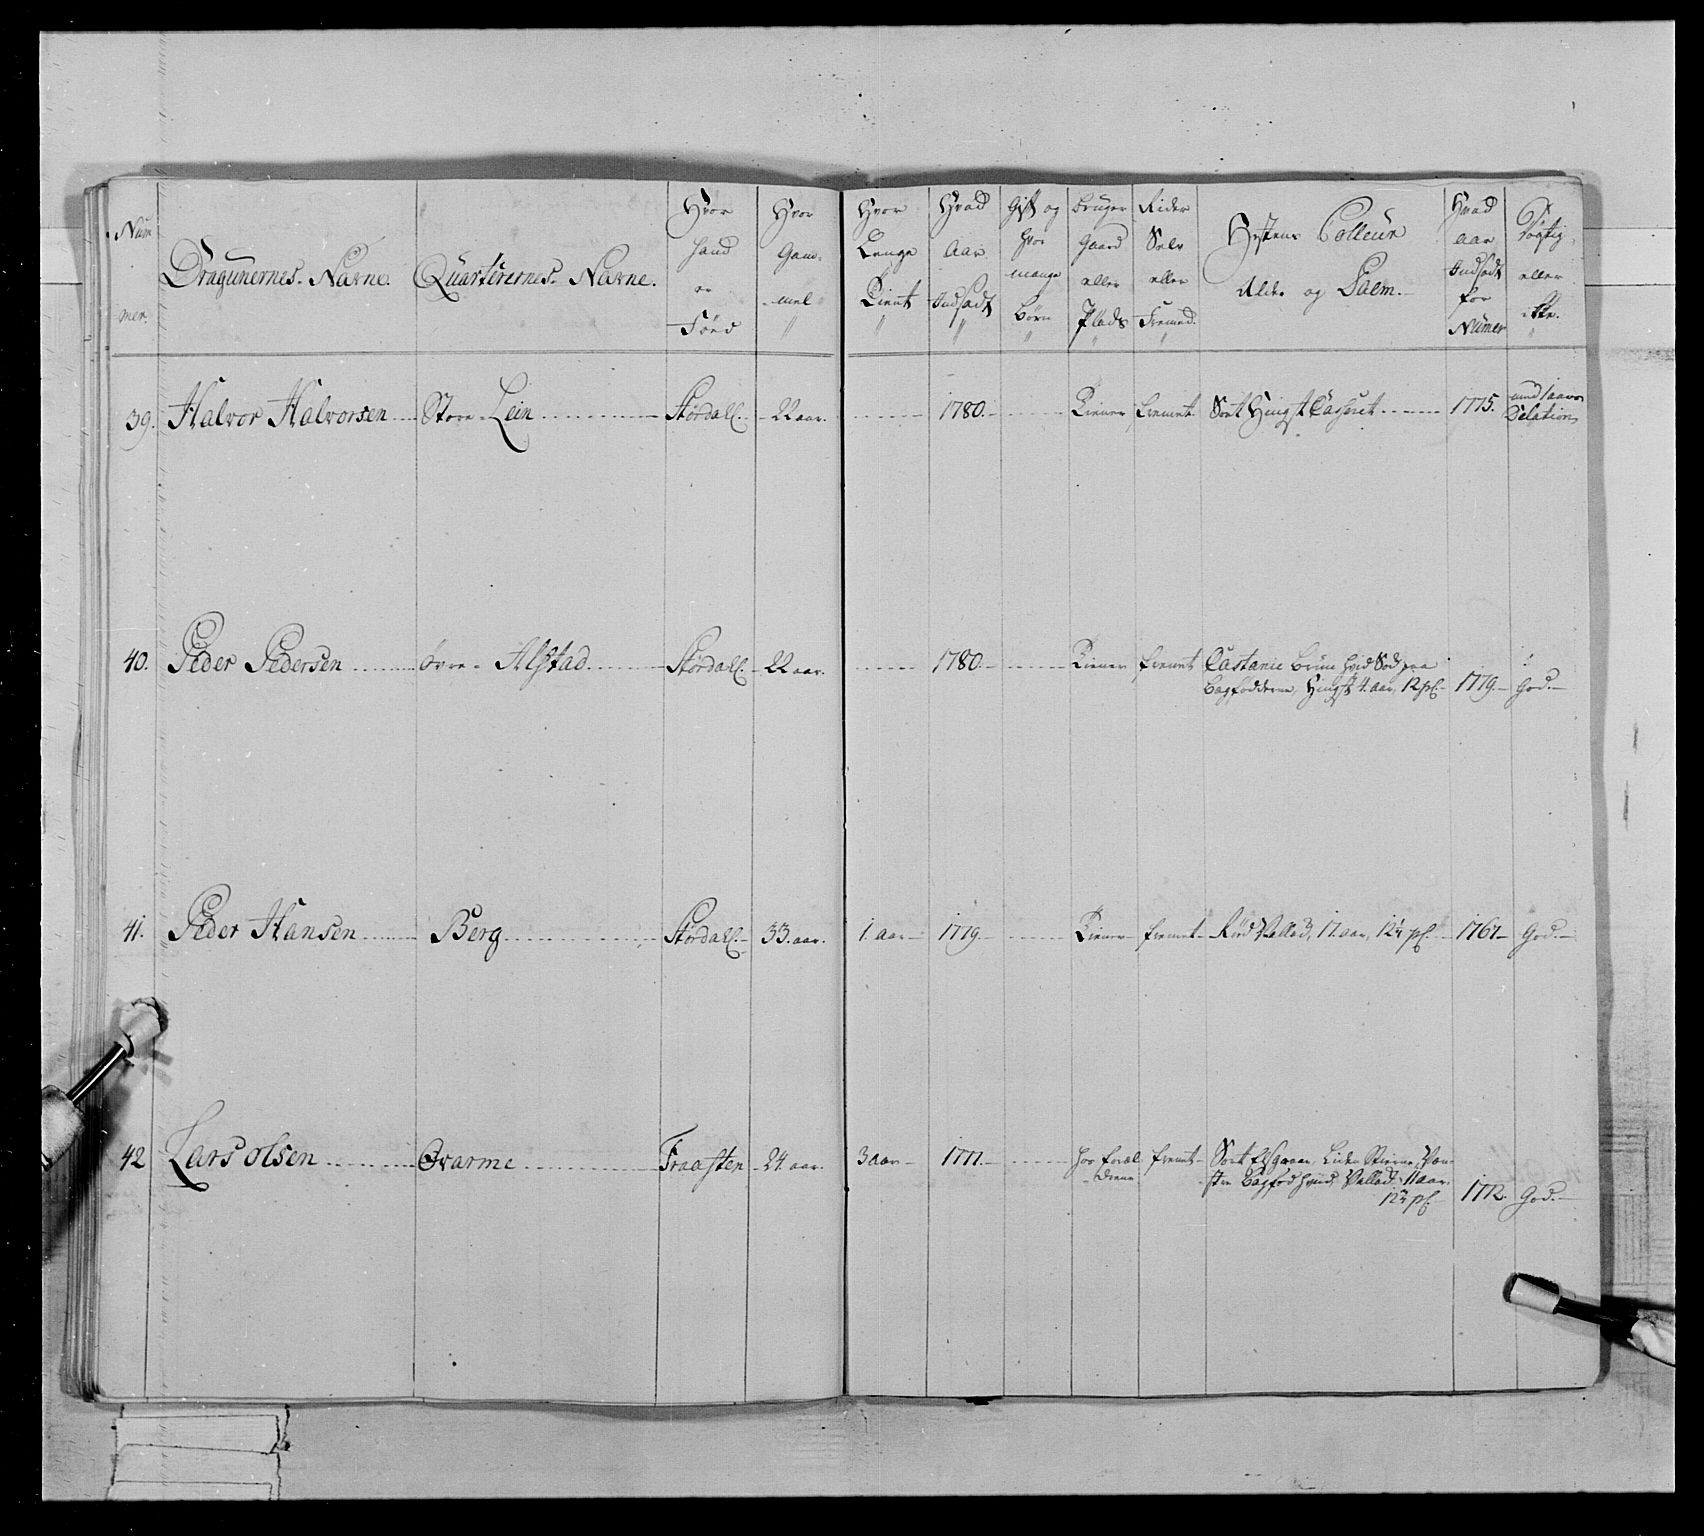 Num
mer.
Dragunernes Navne.
Quarterernes Navne.
Hvor
hand
er
Föed
Hvor
Gam-
mel
Hvor
Lenge
Tient
Hvad
Aar
Indsadt
Gift og
hvor
mange
Börn
Bruger
Gaard
eller
Plads
Rider
Selv
eller
Fremed.
Hestens Colleur
Alder og Palm.
Hvad
aar
Indsadt
for
Numer
Dögtig
eller
ikke.
39. Halvor Halvorsen Store Lein Störda͞l. 22 aar. 1780. Tiener fremet Sort Hingst Casseret 1775. med 1 aars
Delation
40. Peder Pedersen övre Alstad Störda͞l. 22 aar. 1780. Tiener fremet Castanie Brun hvid Sod paa
Bagfödderne, Hingst 4. aar, 12 pl. 1779. God.
41. Peder Hansen Berg Störda͞l. 33. aar. 1. aar 1779. Tiener fremet Röd Vallad, 17. aar, 12¼ pl. 1767. God.
42 Lars olsen Qvarme Fraasten 24 aar. 3 aar 1777. hos foræl-
drene fremet Sort Liden Stierne, Ven-
stre Bagfod hvid, Vallad. 11 aar.
12¼ pl. 1772. God.